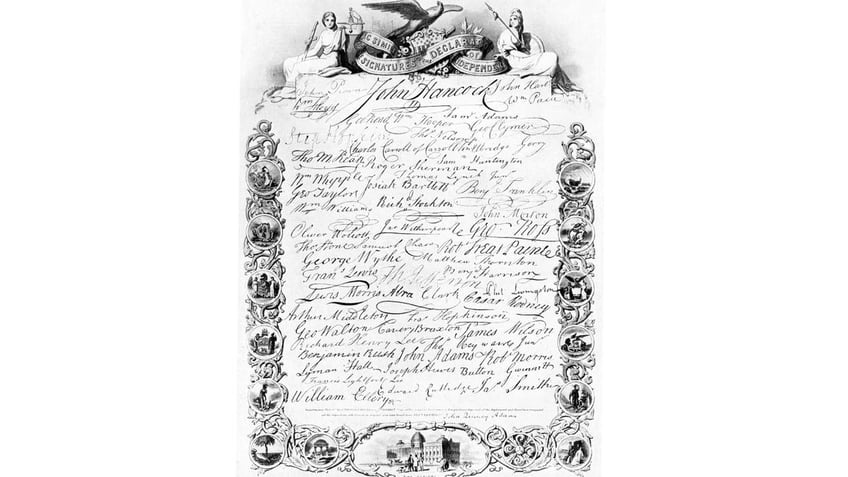 SIGNATURES DECLARAT
OF
DEPENDEN
John Hancock John Hart
Wm Floyd Wm Paca
Geo Read Wm Hooper Sam Adams Geo Clymer
Step Hopkins Tho Nelson jr
Charles Carroll of Carrollton Elbridge Gerry
Tho M:Kean Roger Sherman Sam Huntington
Wm Whipple Thomas Lynch Junr
Geo Taylor Josiah Bartlett Benj Franklin
Wm Williams Richd Stockton
John Morton
Oliver Wolcott Jno Witherspoon Geo Ross
Tho Stone Samuel Chase Robt Treat Paine
George Wythe Matthew Thornton
Frans Lewis Th Jefferson Benj Harrison
Lewis Morris Abra Clark Cæsar Rodney Phil Livingston
Arthur Middleton Fras Hopkinson
Geo Walton Carter Braxton James Wilson
Richard Henry Lee Thos Heyward Junr
Benjamin Rush John Adams Robt Morris
Lyman Hall Joseph Hewes Button Gwinnett
Francis Lightfoot Lee
William Ellery Edward Rutledge Jas Smith
John Quincy Adams